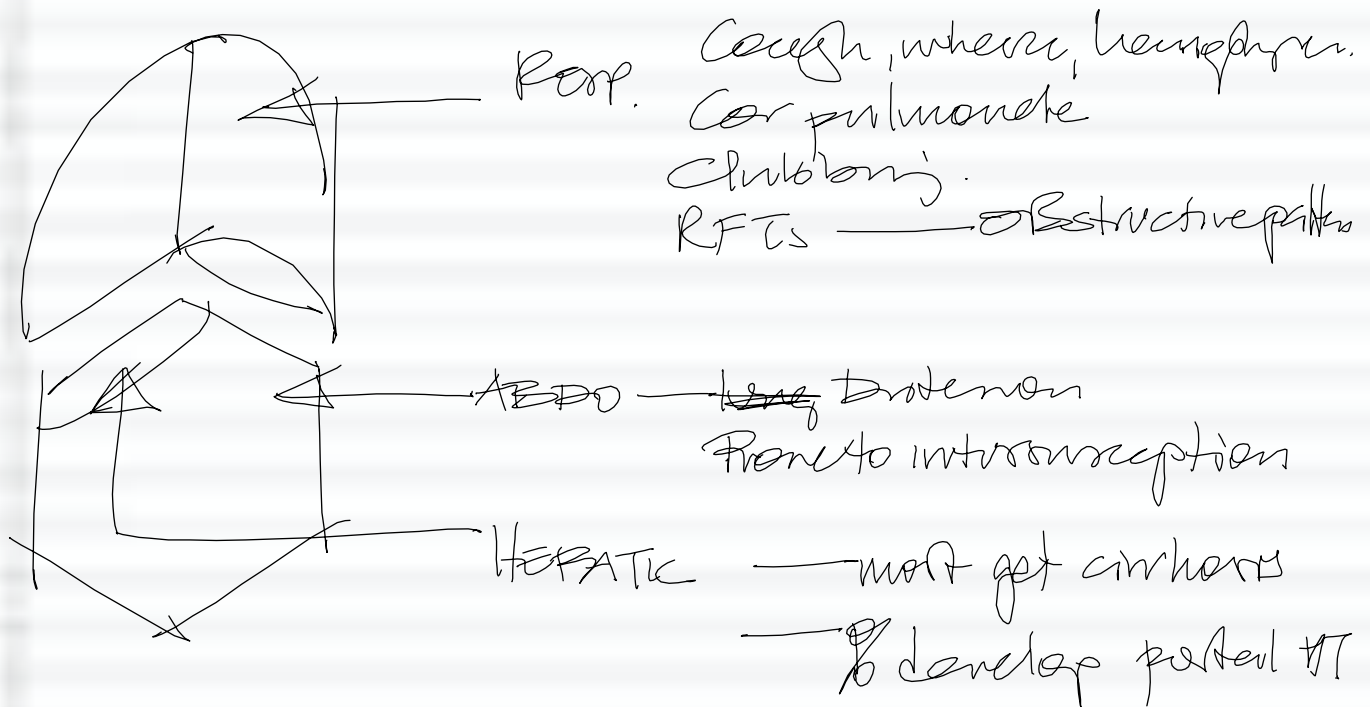 Resp. Cough, wheeze, hemoptysis.
Cor pulmonale
Clubbing.
RFTs — obstructive pattern
ABDO — Distension
Prone to intussusception
HEPATIC — most get cirrhosis
— % develop portal HT